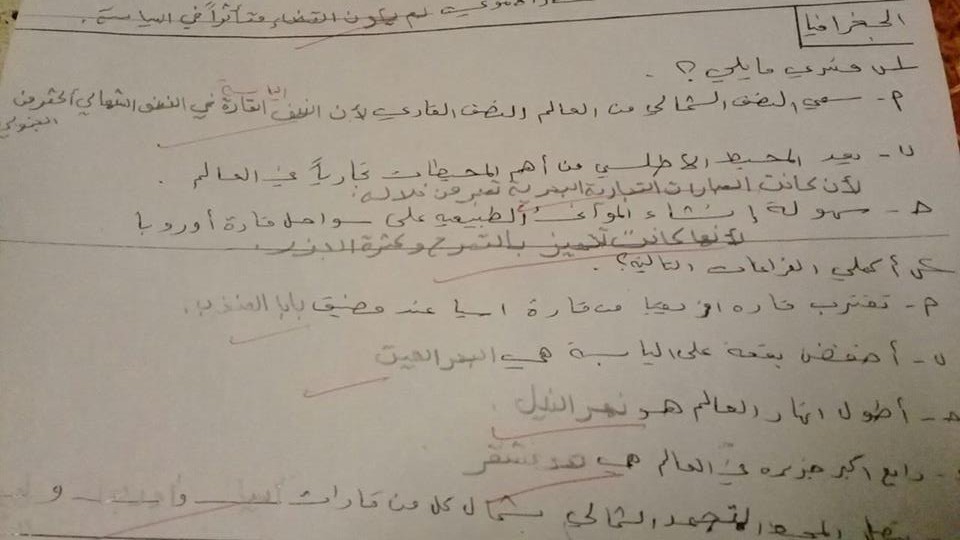 لم يكون القضاء متأثراً في السياسة.
الجغرافيا
س فسري ما يلي ؟.
م- سمي النصف الشمالي من العالم بالنصف القاري لأن القارة في النصف الشمالي أكثر من
الجنوبي
ب- يعد المحيط الاطلسي من أهم المحيطات تجارياً في العالم .
لأن كانت التجارية البحرية تعبر من خلاله.
ح- سهولة إنشاء الموانئ الطبيعيه على سواحل قارة أوروبا
لأنها كانت تتميز بالتعرج وكثرة الجزر
س أكملي الفراغات التالية؟.
م- تقترب قاره افريقيا من قارة اسيا عند مضيق بابا المندب.
ب- أخفض بقعة على اليابسة هي البحر الميت
ح- أطول انهار العالم هو نهر النيل .
رابع اكبر جزيره في العالم هي مدغشقر
المتجمد الشمالي شمال كل من قارات آسيا و و